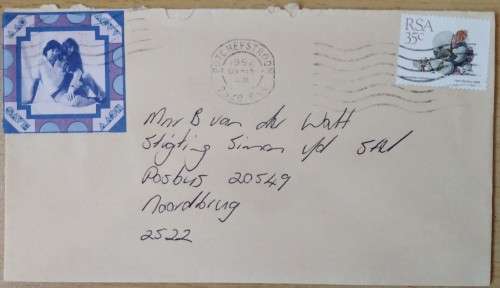 RSA
35c
POTCHEFSTROOM
Mnr B van der Watt
Stigting Simon vd Stel
Posbus 20549
Noordbrug
2522